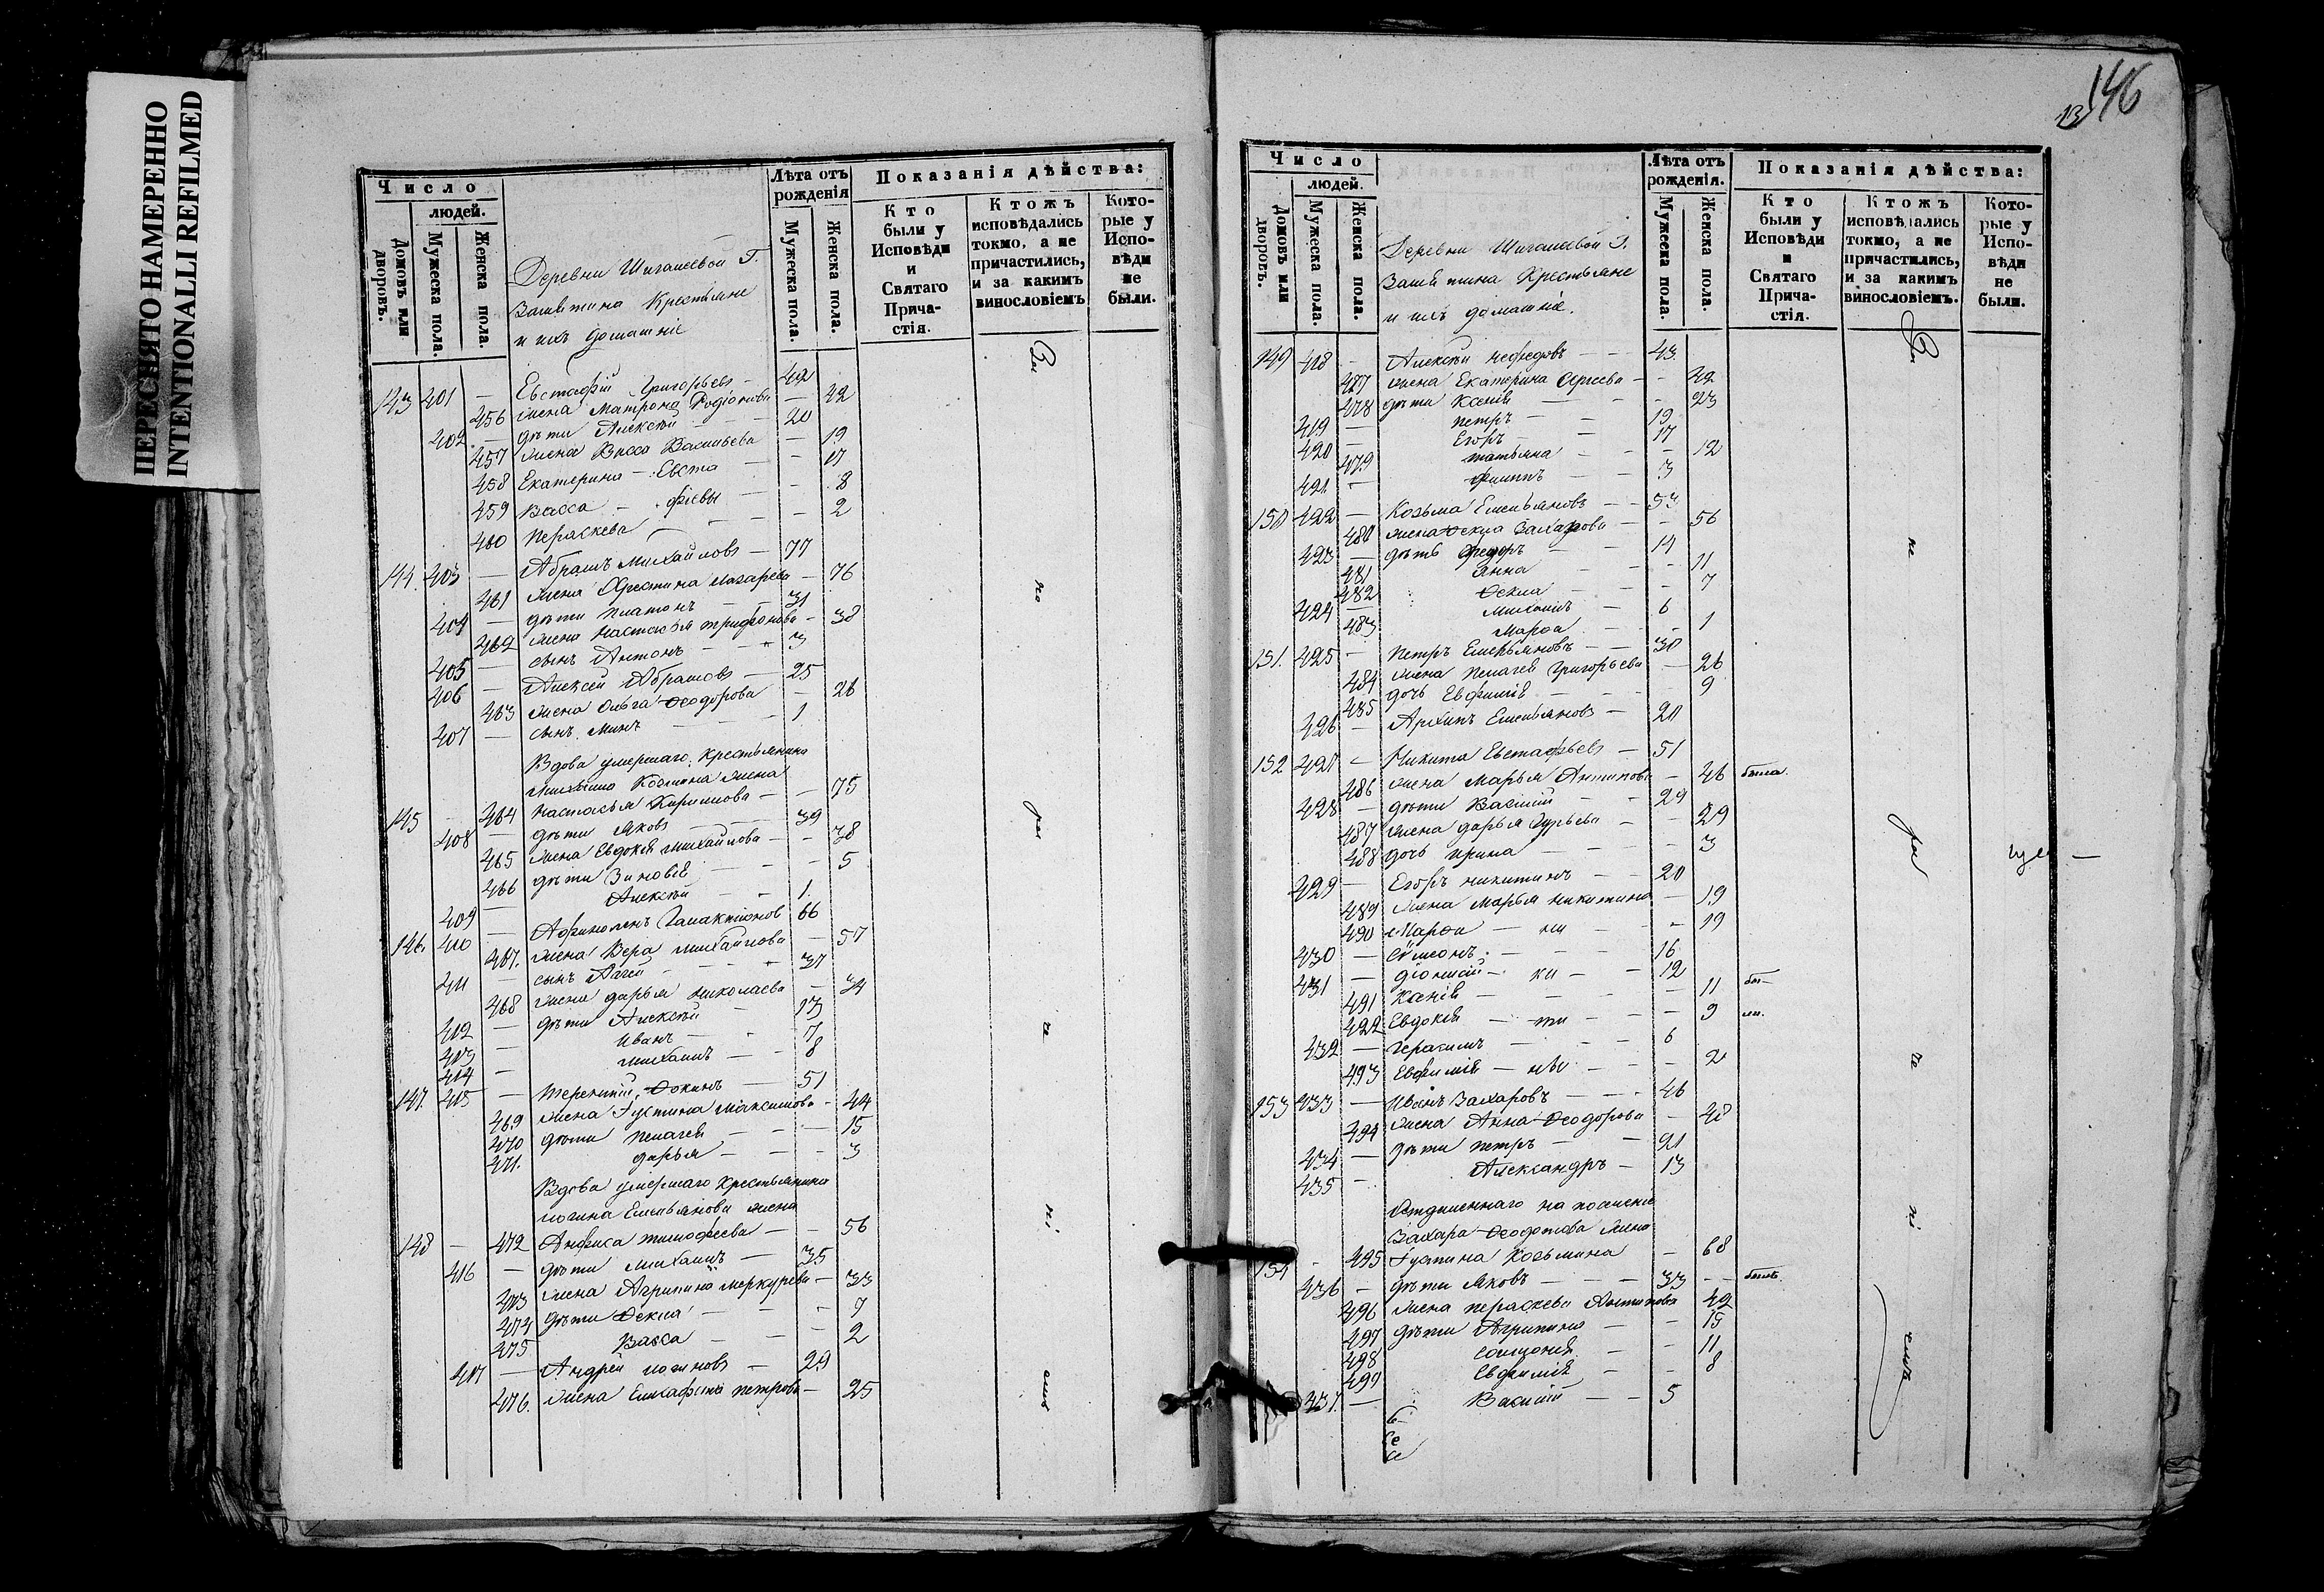 ПЕРЕСНЯТО НАМЕРЕННО
INTENTIONALLI REFILMED
Число
людей.
Домовъ или дворовъ.
Мужеска пола.
Женска пола.
Деревни Шигалеевой Г.
Крестьяне
и ихъ домашніе
Лѣта отъ рожденія
Мужеска пола.
Женска пола.
Показанія дѣйства:
Кто были у Исповѣди и Святаго Прича-стія.
Ктожъ исповѣдались токмо, а не причастились, и за какимъ винословіемъ
Кото-рые у Испо-вѣди не были.
143 401 — Евстафій Григорьевъ — 42
456 жена Матрона Родіонова — 42
402 — дѣти Алексѣй — 20
457 жена Васса Васильева — 19
458 Екатерина — Евста — 17
459 Васса — фіевы — 8
460 Пераскева — 2
144. 403 — Абрамъ Михайловъ — 77
461 жена Христина Лазарева — 76
404 — дѣти Платонъ — 31
462 жена Настасья Трифонова — 38
405 — сынъ Антонъ — 3
406 — Алексѣй Абрамовъ — 25
463 жена Ольга Ѳеодорова — 26
407 — сынъ Минъ — 1
Вдова умершаго Крестьянина
Михаила Козмина жена
145 — 464 Настасья Кирилова — 75
408 — дѣти Яковъ — 39
465 жена Евдокія Михайлова — 38
466 дѣти Зиновія — 5
409 — Алексѣй — 1.
146. 410 — Галактіоновъ 66
467. жена Вера Михайлова — 57
411 — сынъ Аггей — 37
468 жена Дарья Николаева — 34
412 — дѣти Алексѣй — 13
413 — Иванъ — 7
414 — Михаилъ — 8
147. 415 — Терентій Ѳокинъ — 51
469 жена Густина Максимова — 44
470 дѣти Пелагея — 15
471. Дарья — 3
Вдова умершаго Крестьянина
Логина Емельянова жена
148 — 472 Анфиса Тимофеева — 56
416 — дѣти Михаилъ — 35
473 жена Агрипина Меркурьева — 33
474 дѣти Ѳекла — 7
475 Васса — 2
417 — Андрей Логиновъ — 29
476. жена Петрова — 25
146
13
Число
людей.
Домовъ или дворовъ.
Мужеска пола.
Женска пола.
Деревни Шигалеевой Г.
Крестьяне
и ихъ домашніе.
Лѣта отъ рожденія.
Мужеска пола.
Женска пола.
Показанія дѣйства:
Кто были у Исповѣди и Святаго Прича-стія.
Ктожъ исповѣдались токмо, а не причастились, и за какимъ винословіемъ.
Кото-рые у Испо-вѣди не были.
149 418 — Алексѣй Нефедовъ — 43
477 жена Екатерина Сергеева — 42
478 дѣти Ксенія — 23
419 — Петръ — 19
420 — Егоръ — 17
479 Татьяна — 12
421 — Филипъ — 3
150 422 — Козьма Емельяновъ — 53
480 жена Ѳекла Захарова — 56
423 — дѣти Ѳедоръ — 14
481 Анна — 11
482 Ѳекла — 7
424 — Михаилъ — 6
483 Марѳа — 1
151. 425 — Петръ Емельяновъ — 30
484 жена Пелагея Григорьева — 26
485 дочь Евфимія — 9
426 — Архипъ Емельяновъ — 20
152 427 — Никита Евстафьевъ — 51
486 жена Марья Антипова — 46 была.
428 — дѣти Василій — 29
487 жена Дарья Гурьева — 29
488 дочь Ирина — 3
429 — Егоръ Никитинъ — 20
489 жена Марья Никитина — 19
490 Марѳа — ни — 19
430 — Сѵмеонъ — 16
431 — Діонисій — ки — 12
491 Ксенія — 11 бы—
492 Евдокія — ти — 9 ли.
432 — Герасимъ — 6
493 Евфимія — ны — 2
153 433 — Иванъ Захаровъ — 46
494 жена Анна Ѳеодорова — 48
434 — дѣти Петръ — 21
435 — Александръ — 13
Отданнаго на поселеніе
Захара Ѳеодотова жена
154 — 495 Густина Козьмина — 68
436 — дѣти Яковъ — 33 — былъ.
496 жена Пераскева Антипова 42
497 дѣти Агрипина — 15
498 Соломонія — 11
499 Евфимія — 8
437. — Василій — 5
За
не
ра
че
ні
емъ